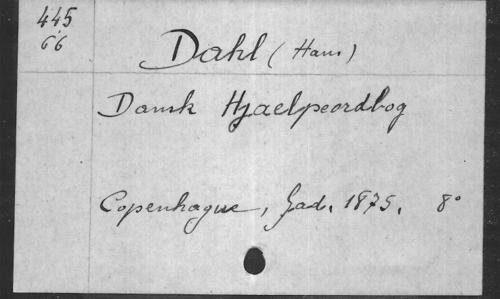 445
66
Dahl (Hans)
Dansk Hjaelpeordbog
Copenhague, Gad. 1875. 8°